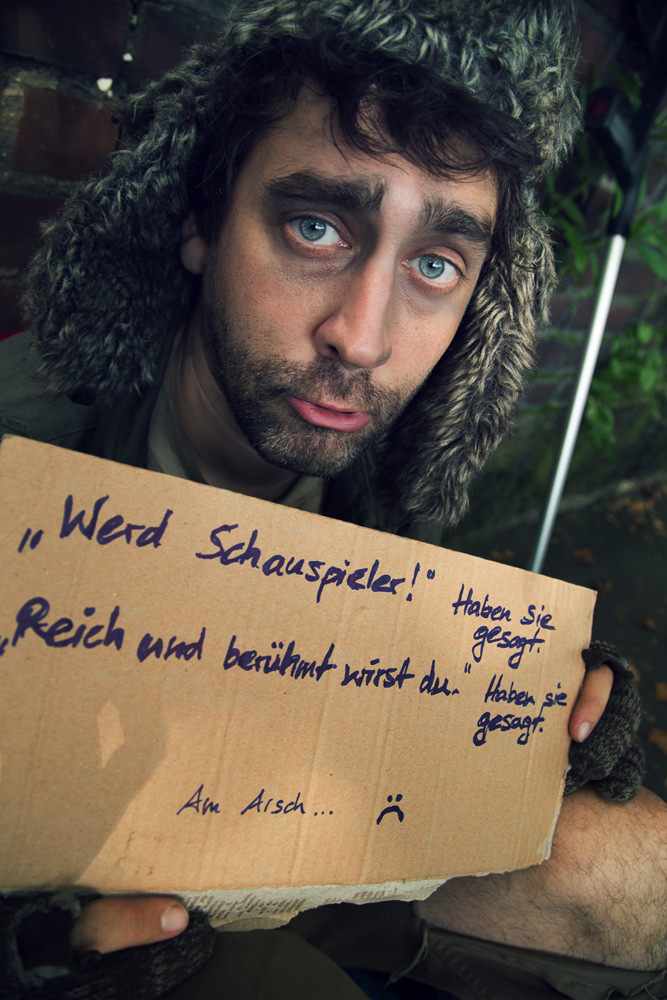 „Werd Schauspieler!“ Haben sie
gesagt.
„Reich und berühmt wirst du.“ Haben sie
gesagt.
Am Arsch... :(